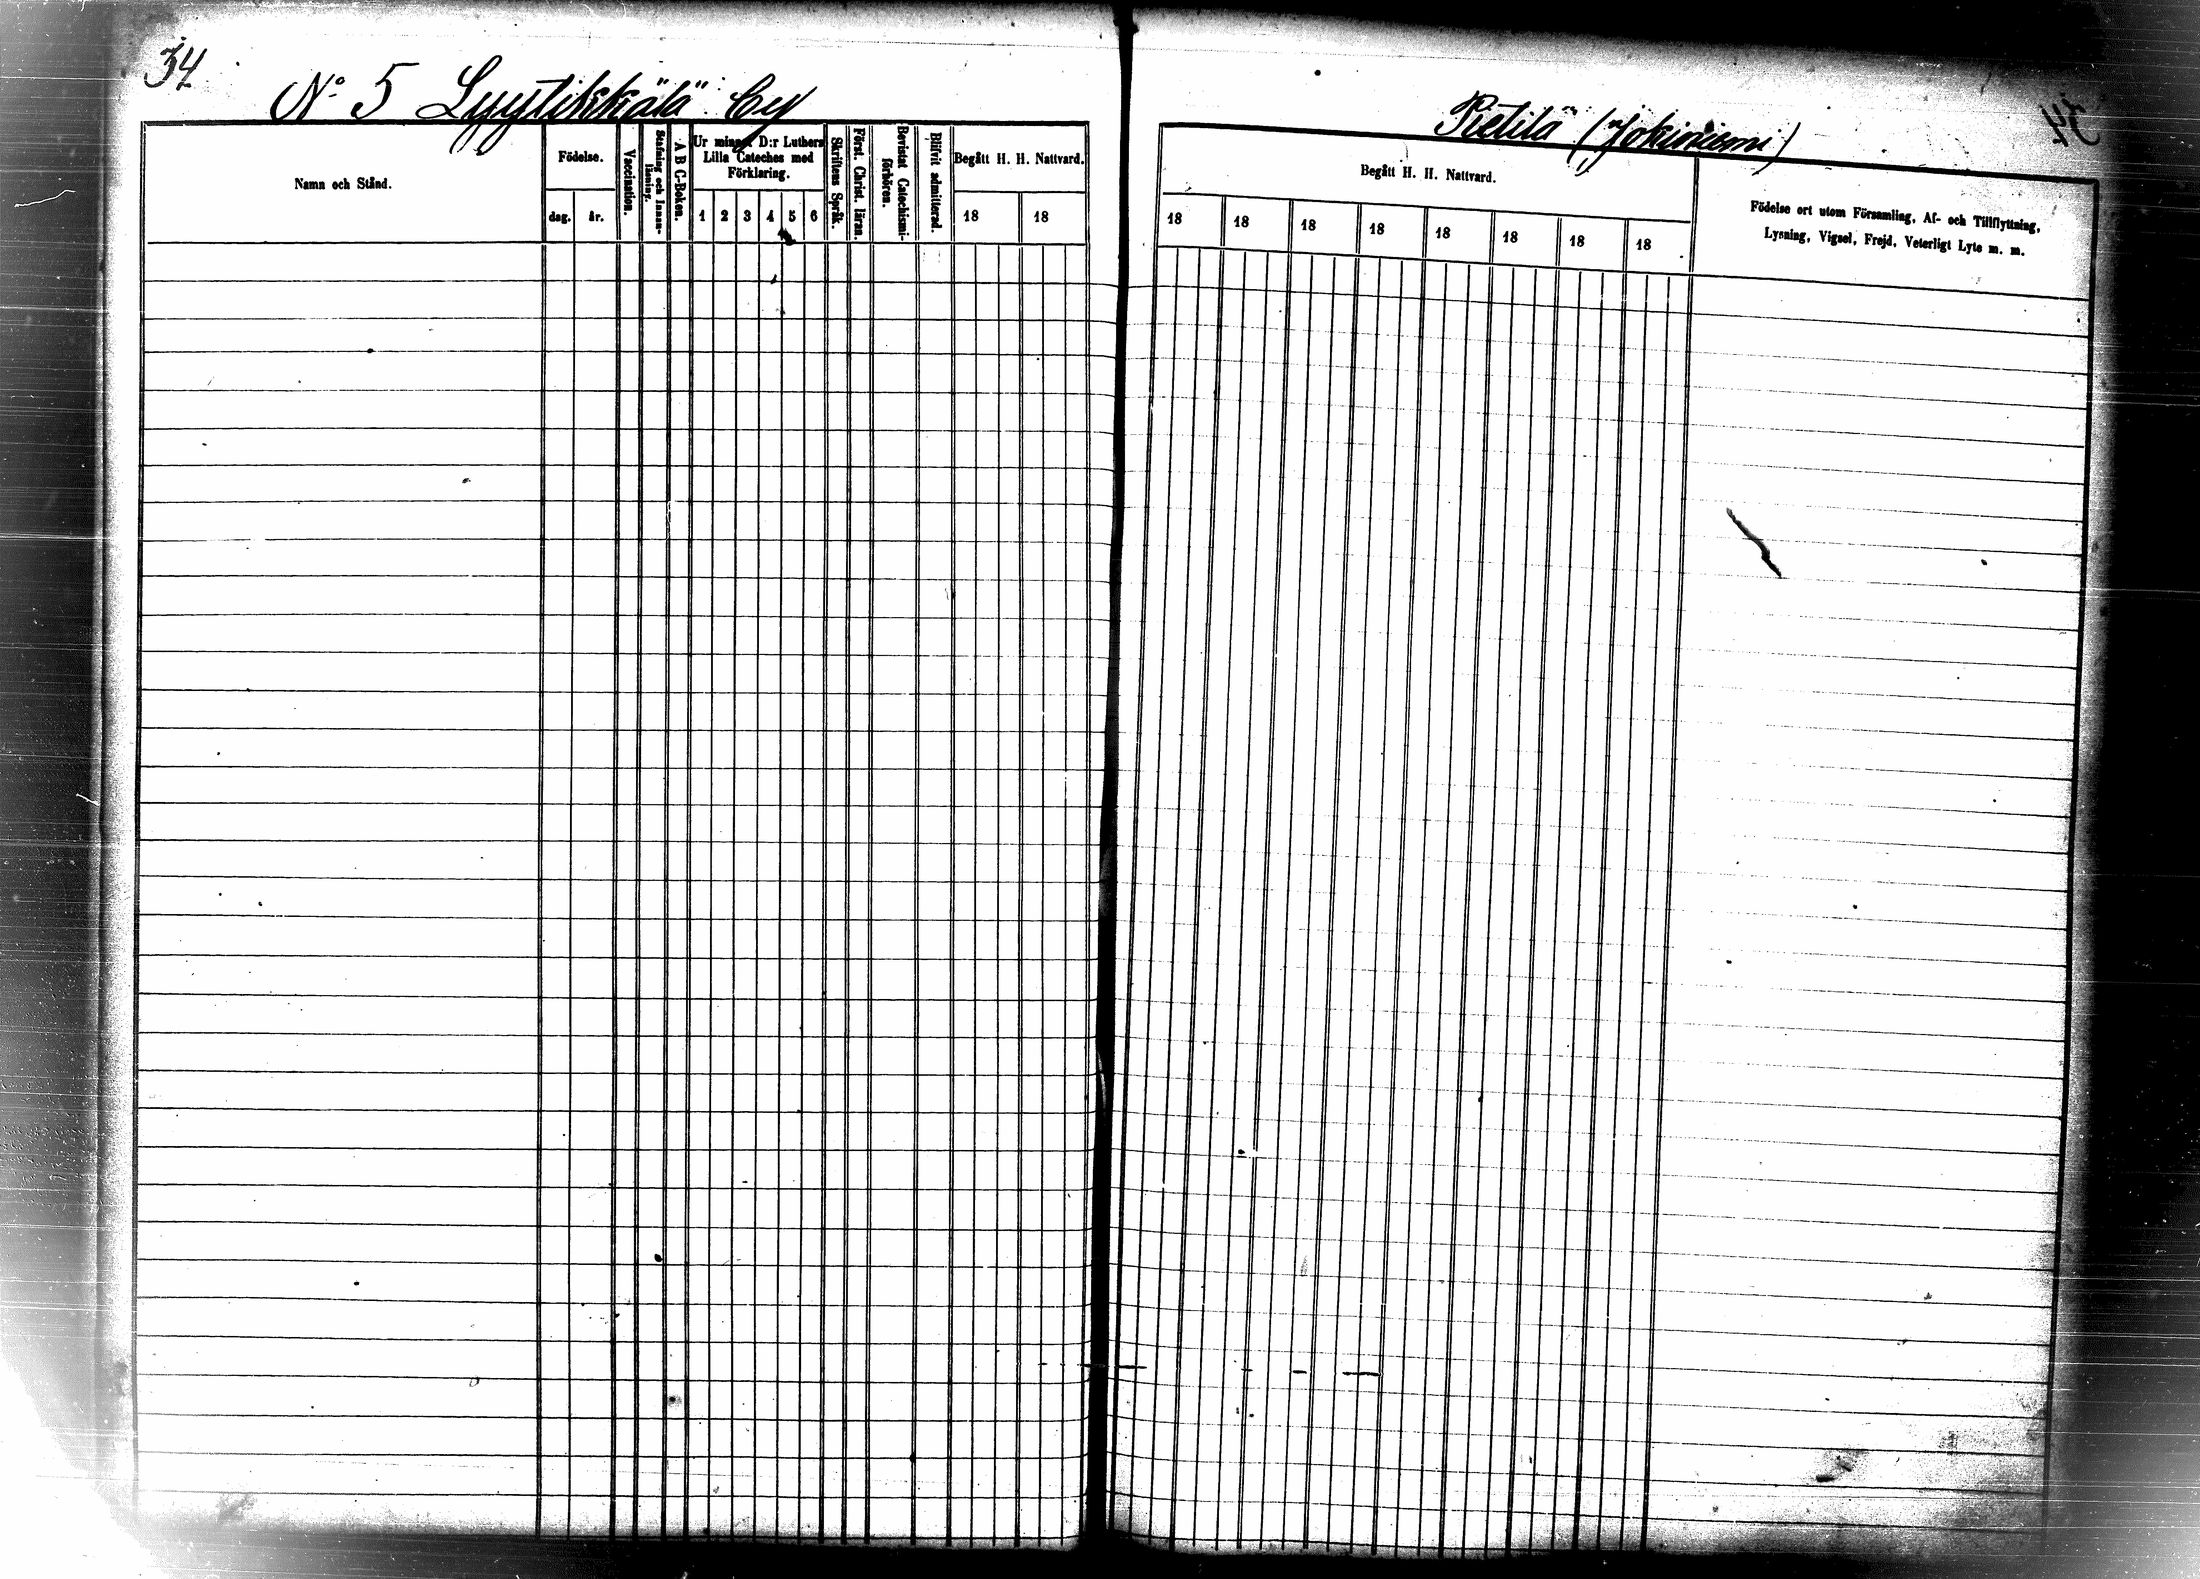 34
No 5 Lyytikkälä By
Namn och Stånd.
Födelse.
dag.
år.
Vaccination.
Stafning och Innan-
läsning.
A B C-Boken.
Ur minnet D:r Luthers
Lilla Cateches med
Förklaring.
1 2 3 4 5 6
Skriftens Språk.
Först. Christ. läran.
Bevistat Catechismi-
förhören.
Blifvit admitterad.
Begått H. H. Nattvard.
18 18
Pietilä (Jokiniemi)
34
Begått H. H. Nattvard.
18 18 18 18 18 18 18 18
Födelse ort utom Församling, Af- och Tillflyttning,
Lysning, Vigsel, Frejd, Veterligt Lyte m. m.